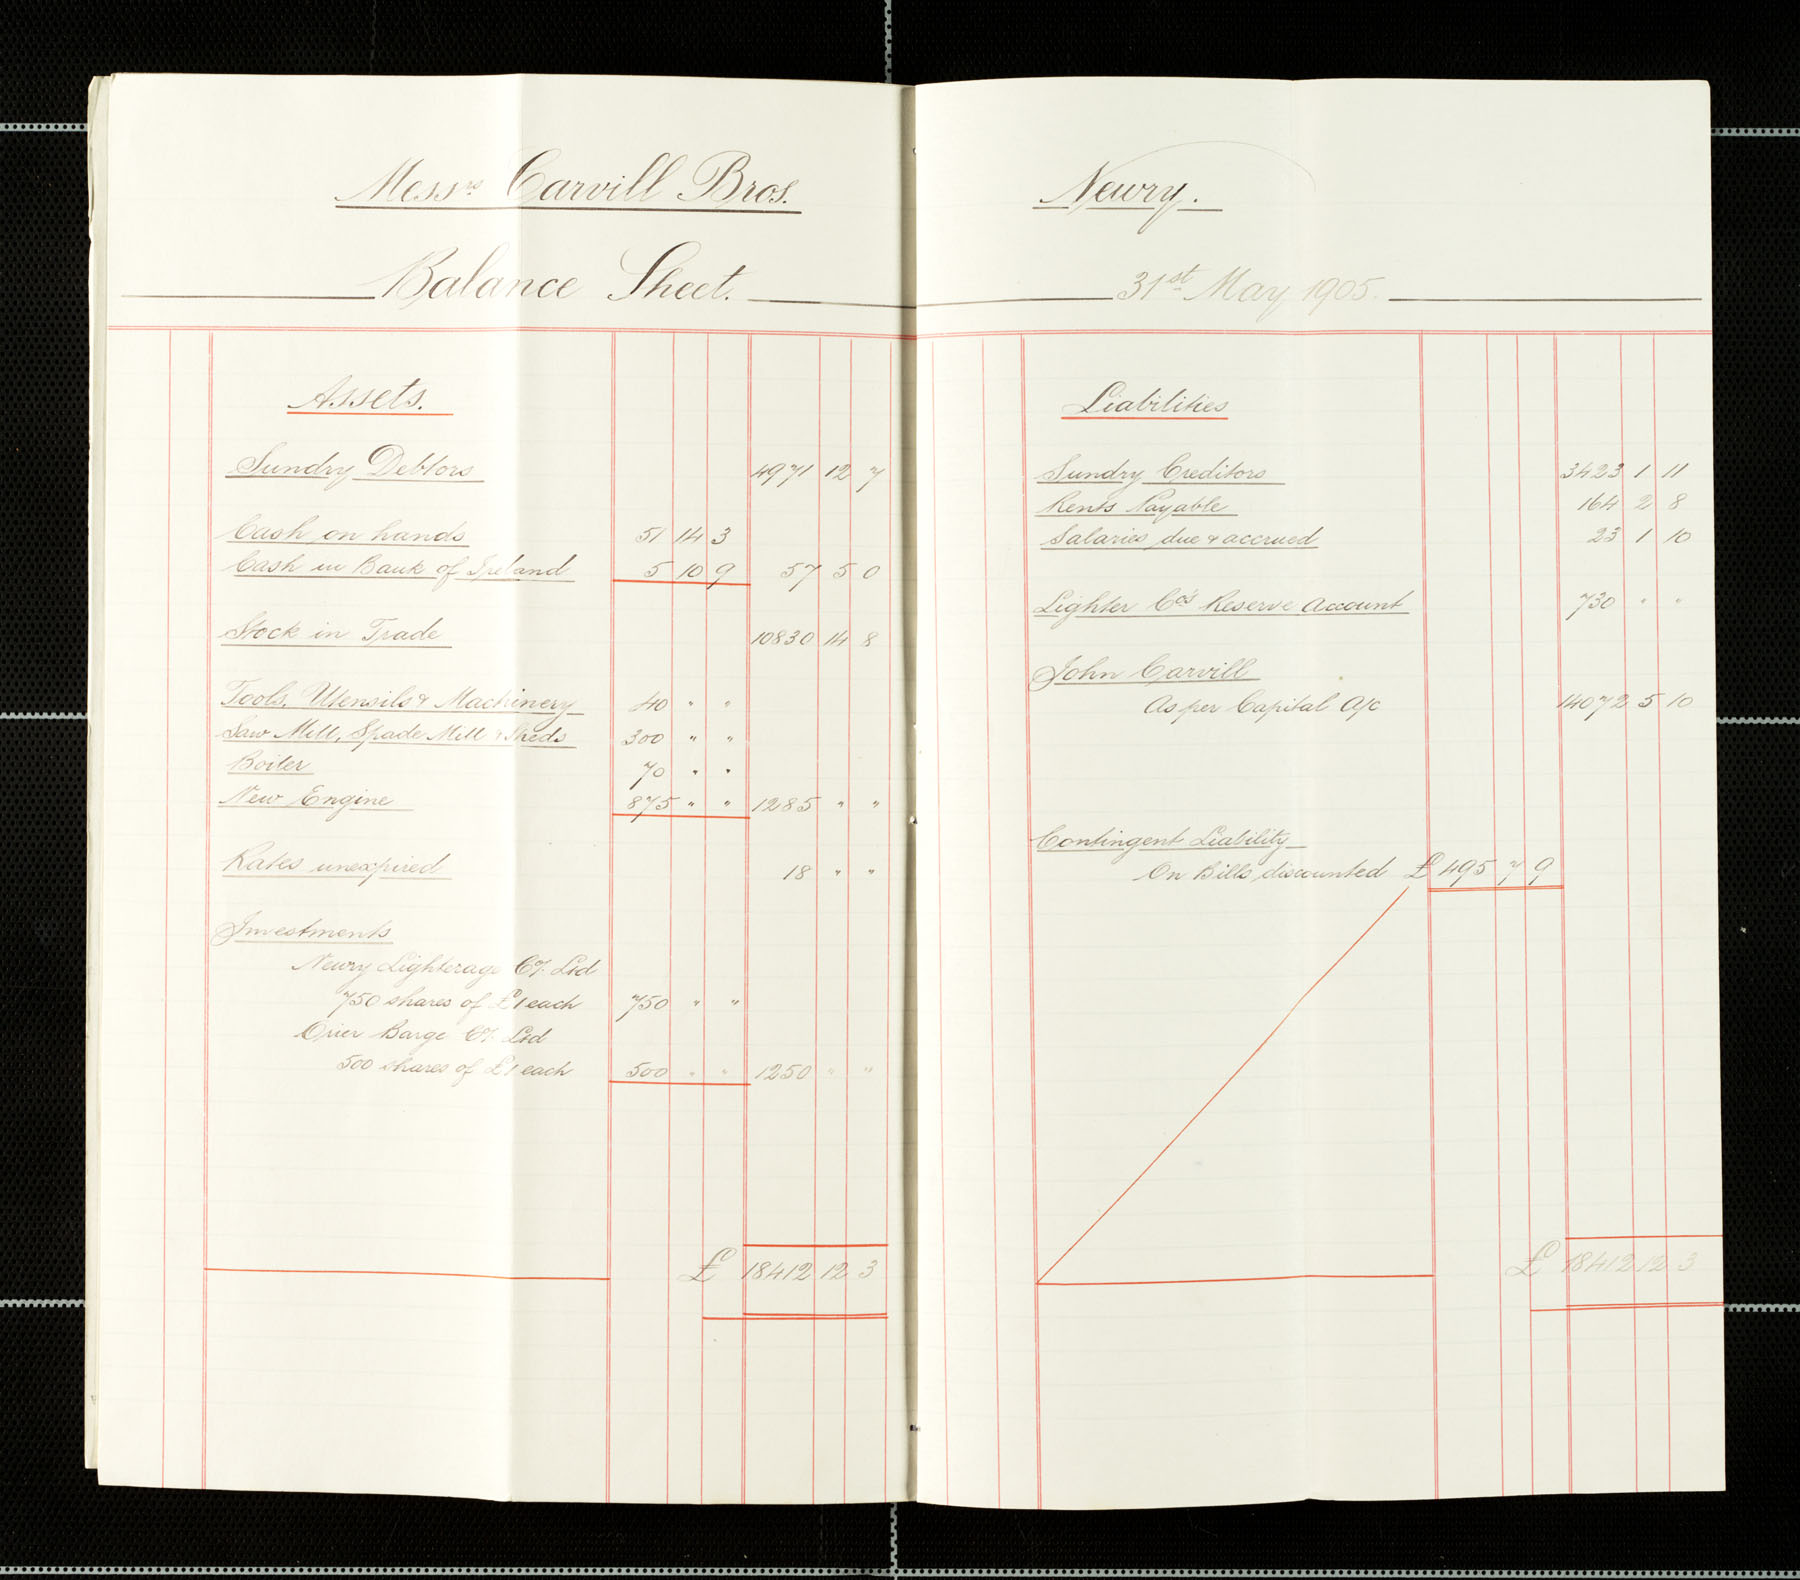 Messrs Carvill Bros.
Balance Sheet.
Assets.
Sundry Debtors 4971 12 7
Cash on hands 51 14 3
Cash in Bank of Ireland 5 10 9 57 5 0
Stock in Trade 10830 14 8
Tools, Utensils & Machinery 40 " "
Saw Mill, Spade Mill & Sheds 300 " "
Boiler 70 " "
New Engine 875 " " 1285 " "
Rates unexpired 18 " "
Investments
Newry Lighterage Co. Ltd
750 shares of £1 each 750 " "
Orier Barge Co. Ltd
500 shares of £1 each 500 " " 1250 " "
£ 18412 12 3
Newry.
31st May 1905.
Liabilities
Sundry Creditors 3423 1 11
Rents Payable 164 2 8
Salaries due & accrued 23 1 10
Lighter Co's Reserve Account 730 " "
John Carvill
As per Capital A/c 14072 5 10
Contingent Liability
On Bills discounted £ 495 7 9
£ 18412 12 3